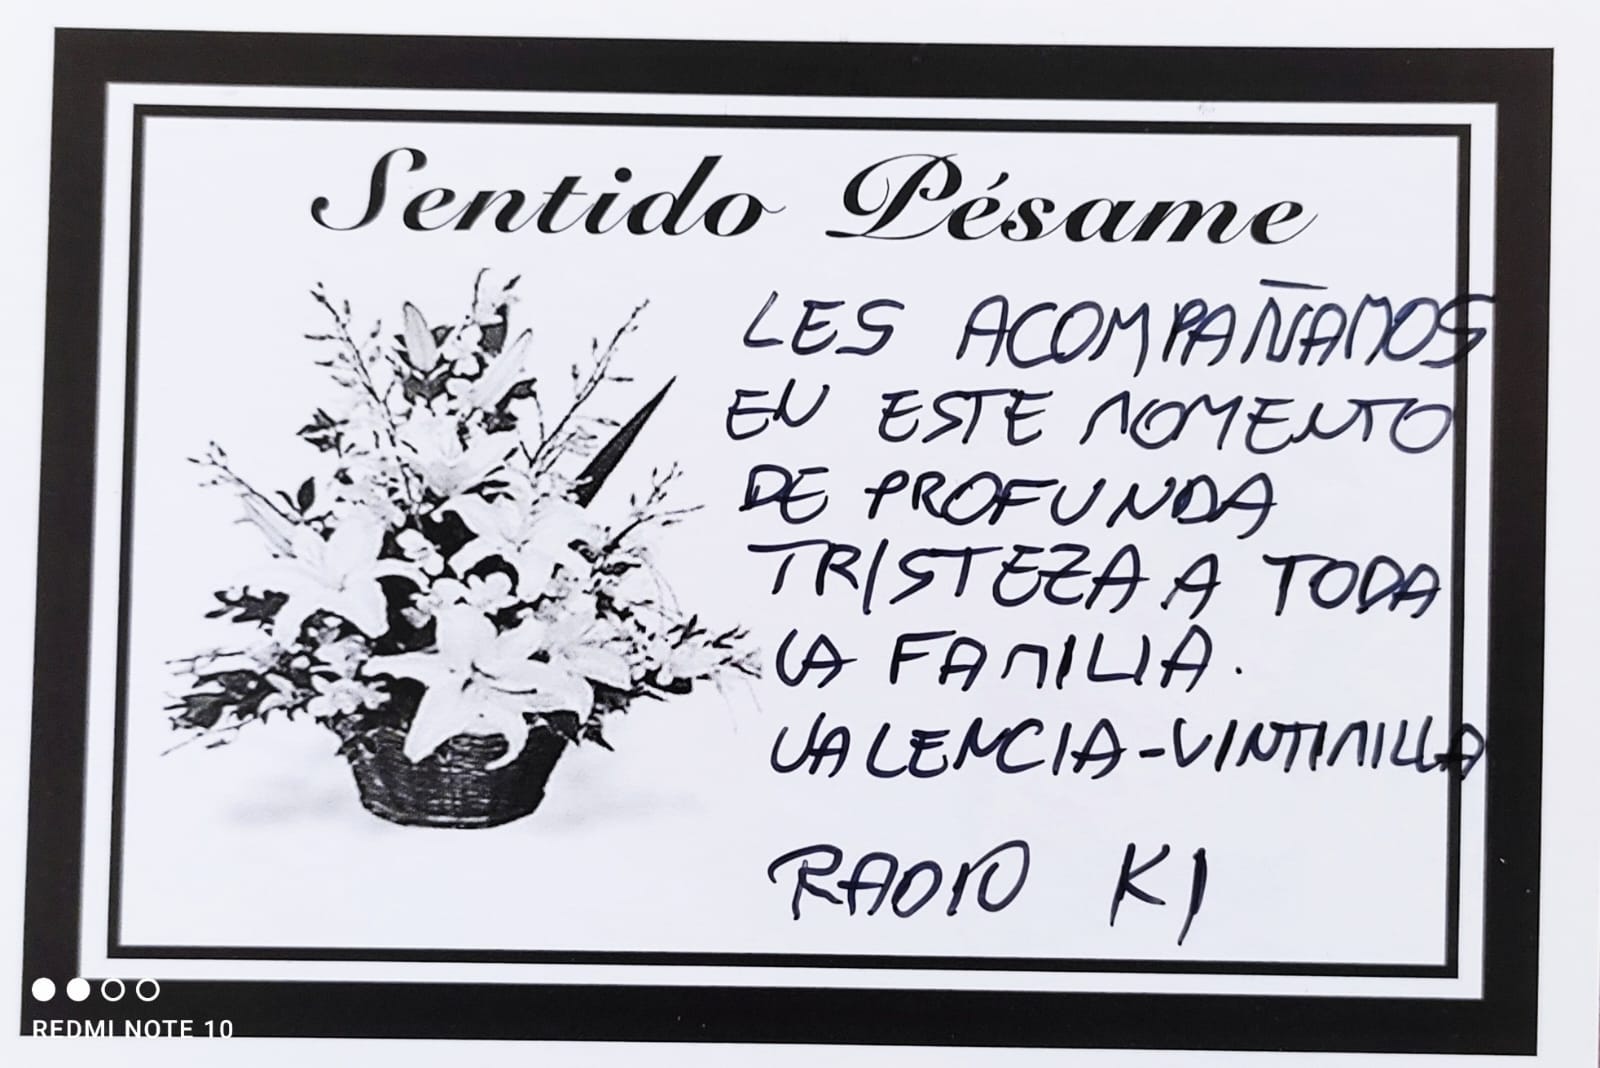 Sentido Pésame
LES ACOMPAÑAMOS
EN ESTE MOMENTO
DE PROFUNDA
TRISTEZA A TODA
LA FAMILIA.
VALENCIA-VINTIMILLA
RADIO K1
REDMI NOTE 10